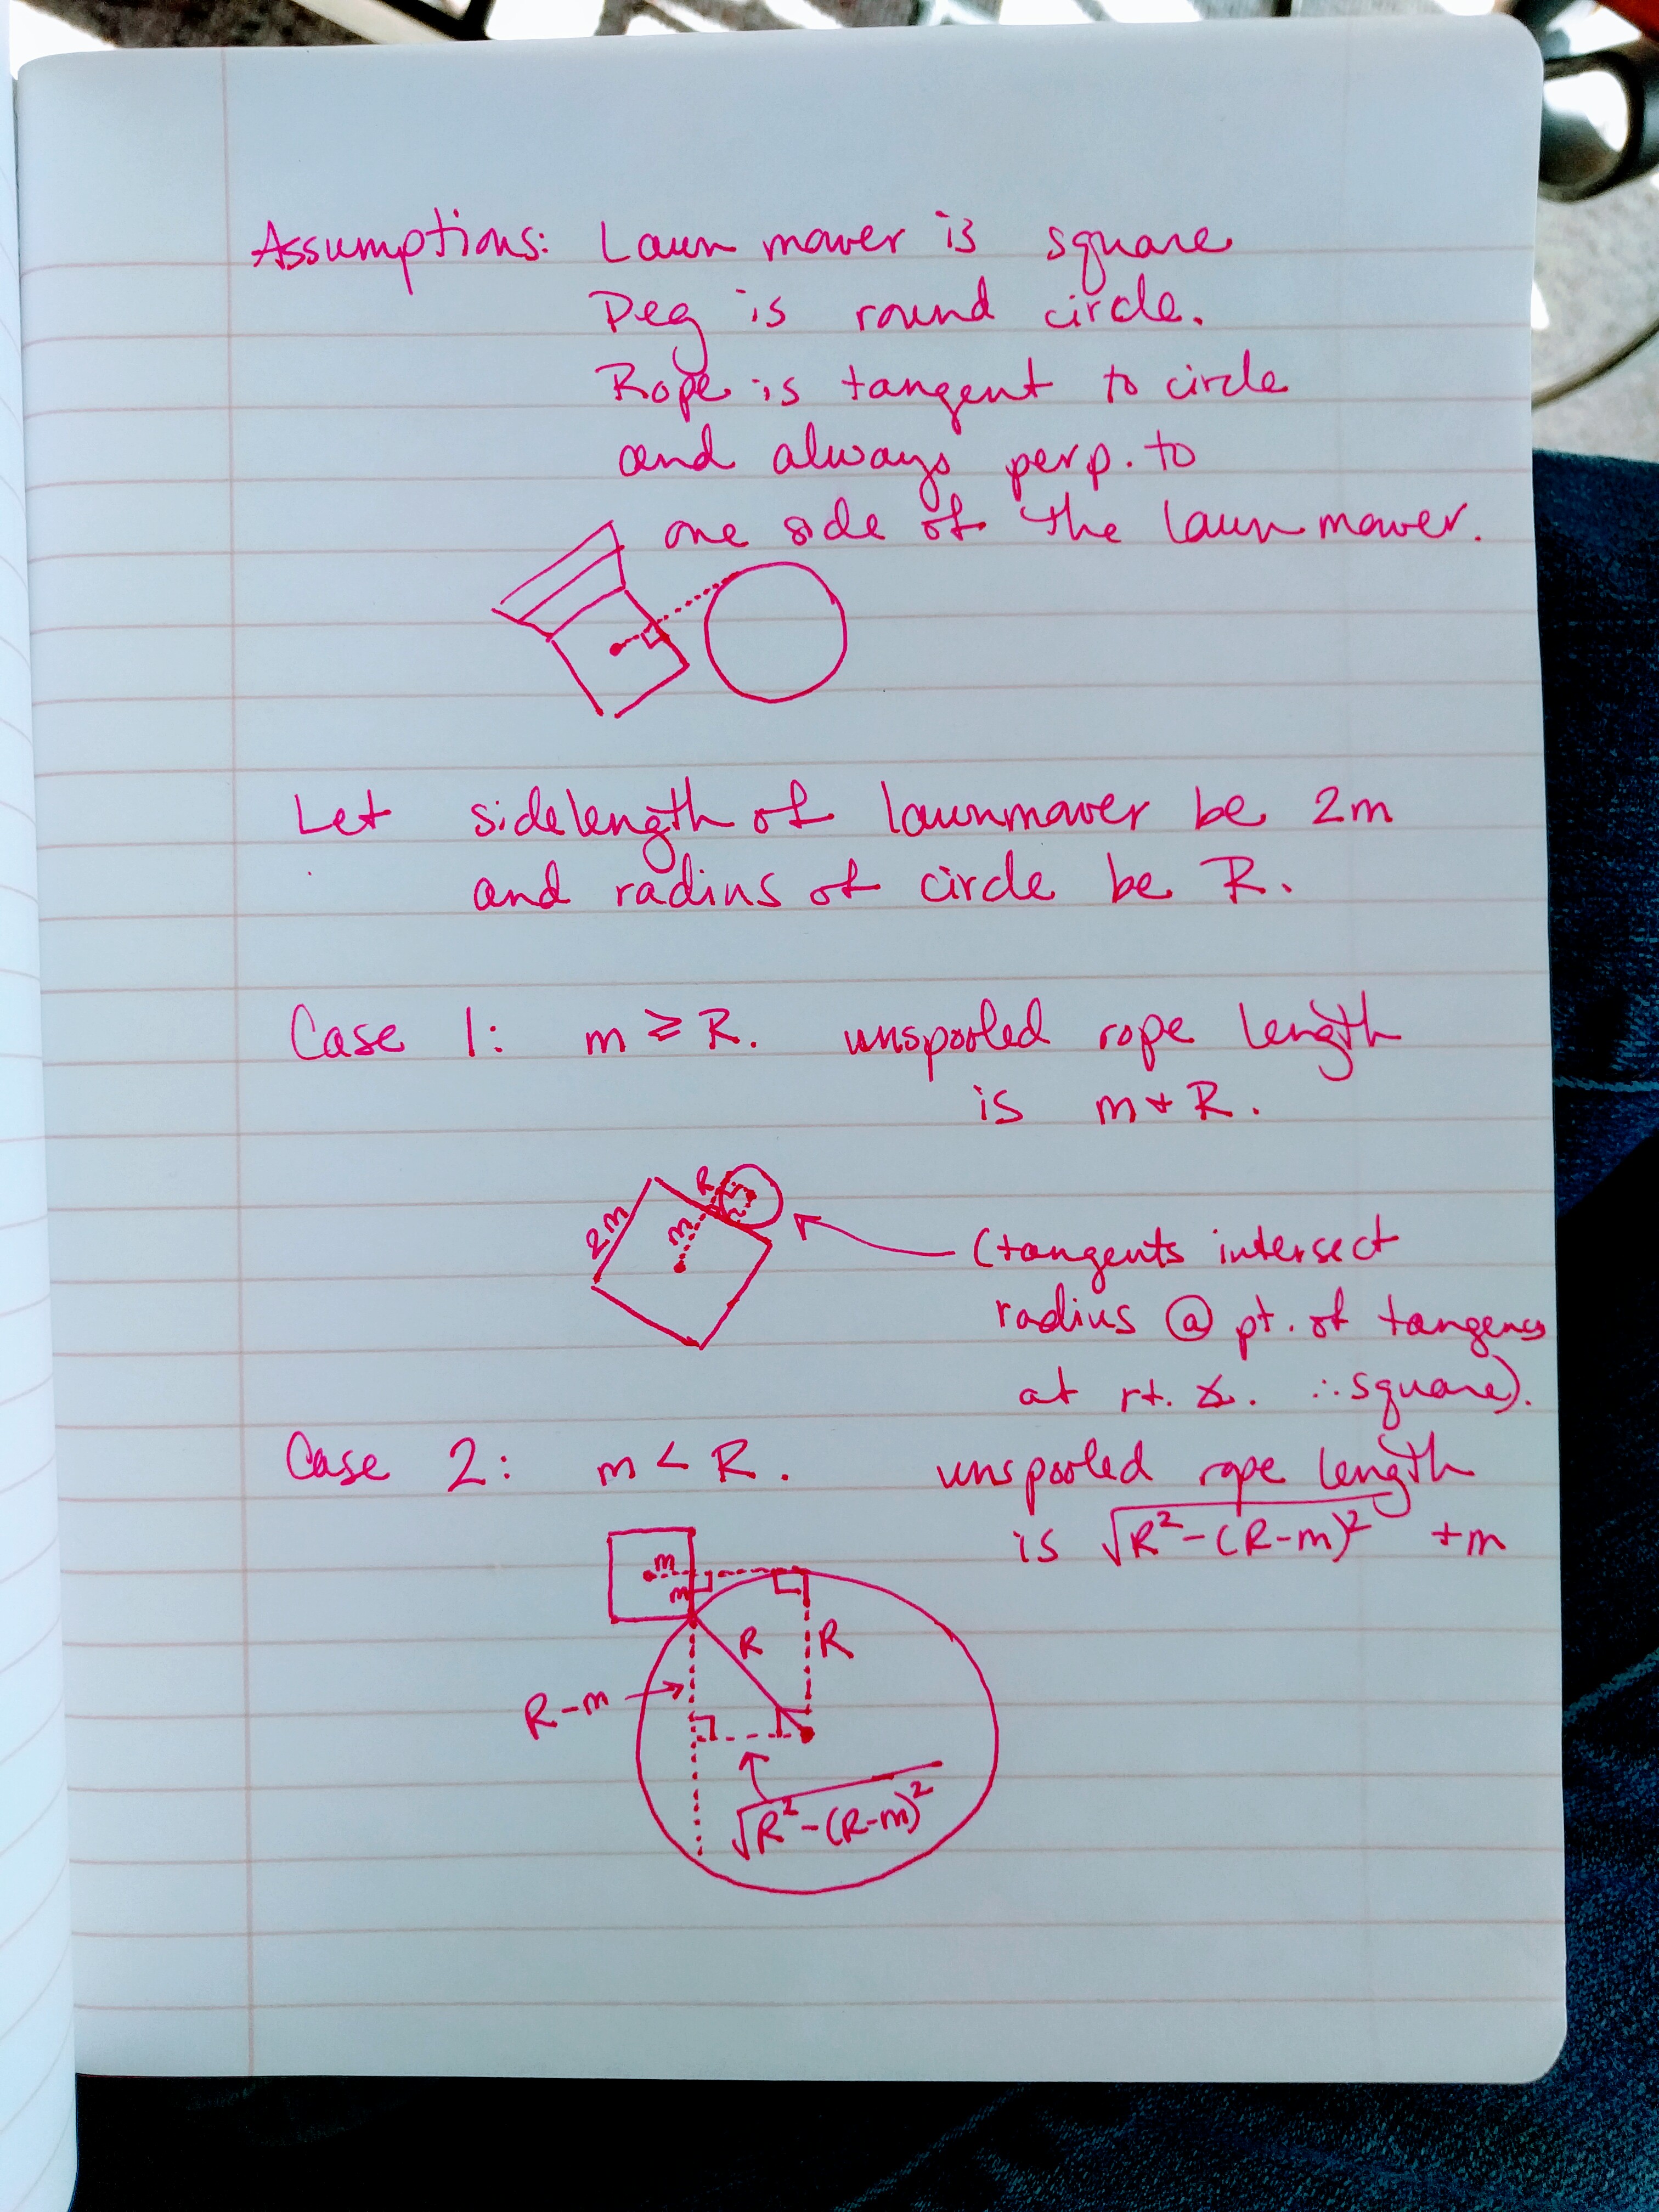 Assumptions: Lawn mower is square
Peg is round circle.
Rope is tangent to circle
and always perp. to
one side of the lawn mower.
Let sidelength of lawnmower be 2m
and radius of circle be R.
Case 1: m ≥ R. unspooled rope length
is m + R.
R
2m
m
(tangents intersect
radius @ pt. of tangency
at rt. ∡. ∴ square).
Case 2: m < R. unspooled rope length
is √R²-(R-m)² + m
m
m
R R
R-m →
√R²-(R-m)²